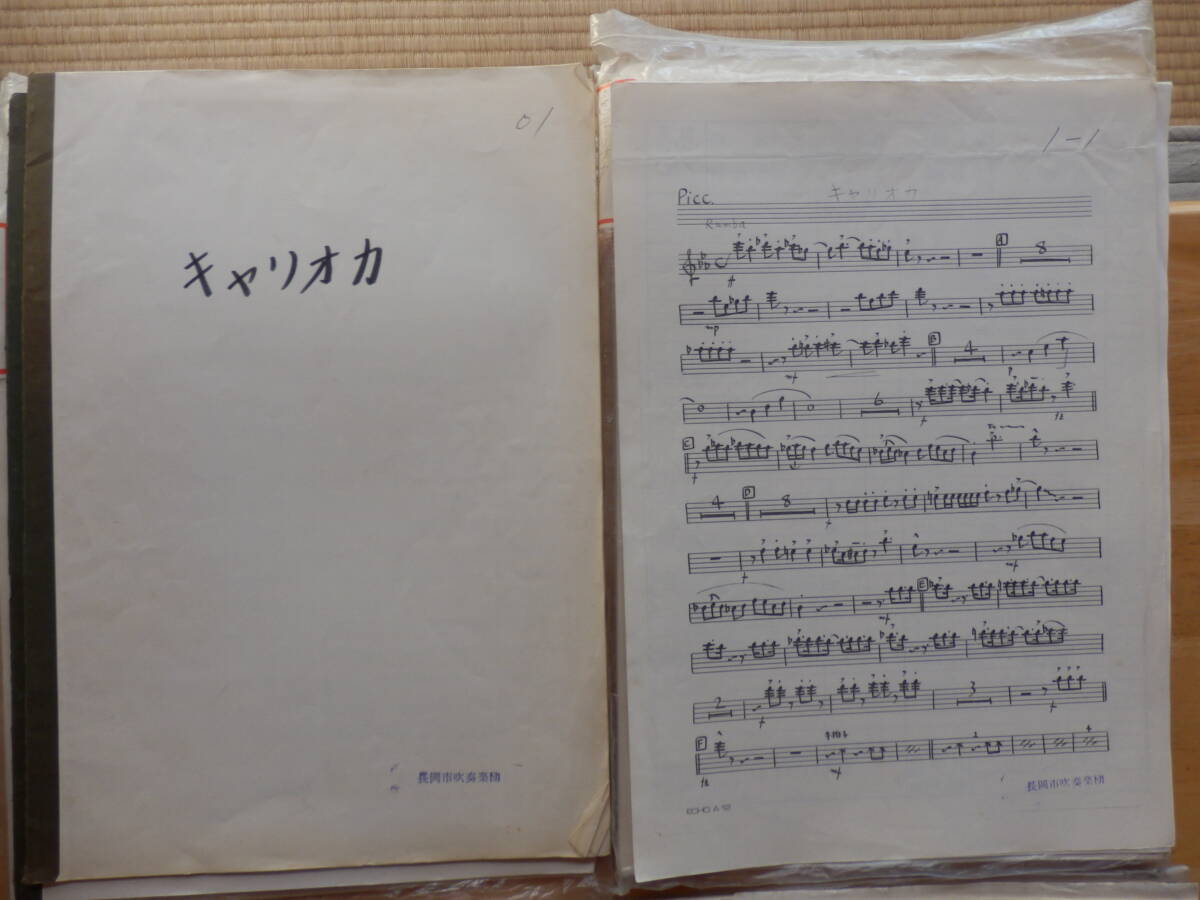 01
キャリオカ
長岡市吹奏楽団
1-1
Picc.
キャリオカ
Rumba
f
A
8
mp
mf
B
4
p
6
f
fz
C
f
4
D
8
f
f
mf
mf
E
2
f
3
f
F
fz
mf
2
4
長岡市吹奏楽団
ECHO A 12